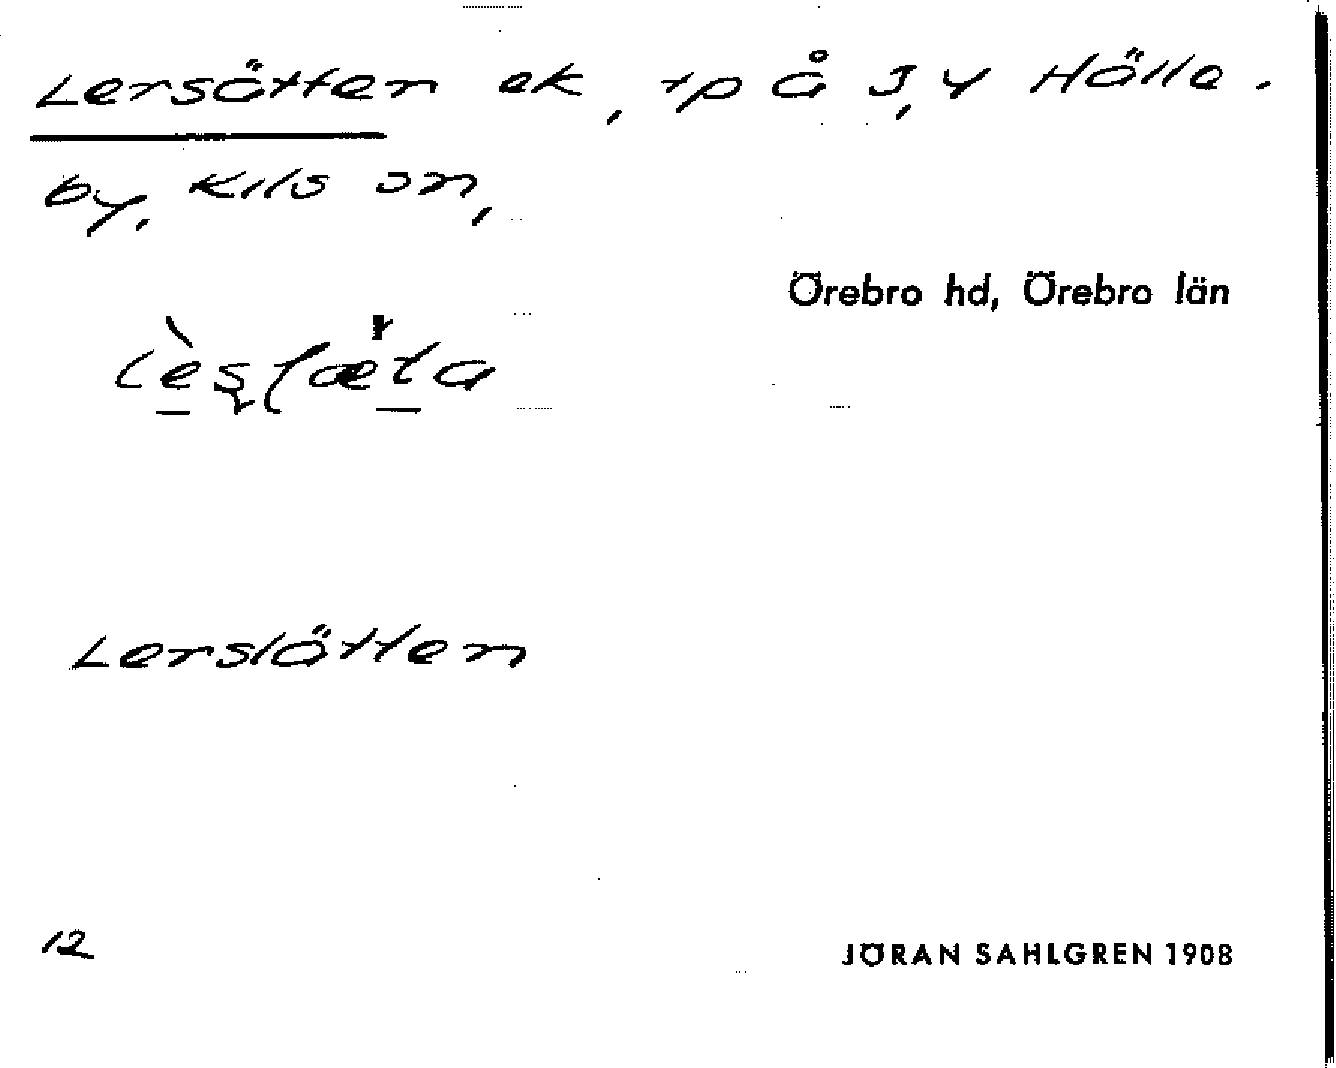 Lersötten ek, tp å 3,4 Hälle.
by, Kils sn,
Örebro hd, Örebro län
Lerslötten
12
JÖRAN SAHLGREN 1908